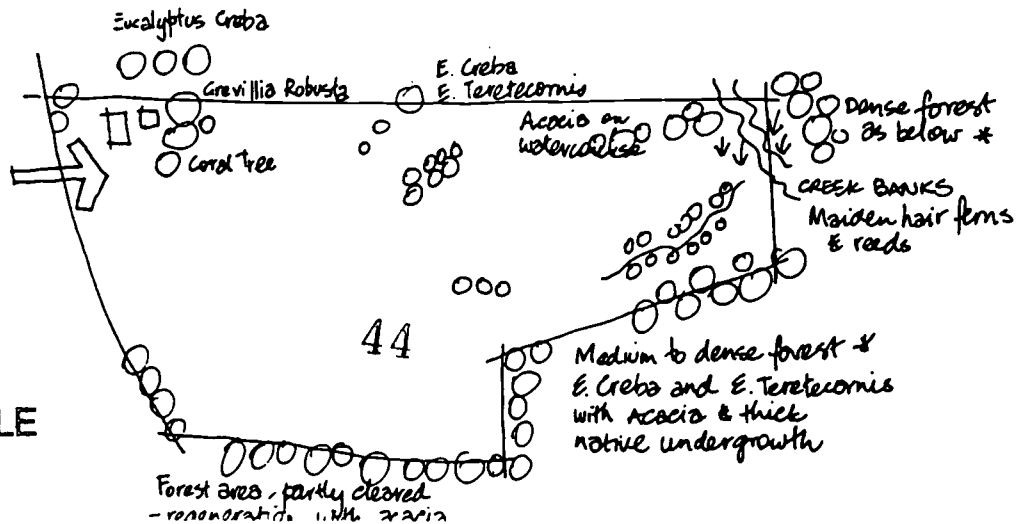 Eucalyptus Creba
Grevillia Robusta
E. Creba
E. Teretecornis
Acacia on
watercourse
Dense forest
as below *
Coral Tree
CREEK BANKS
Maiden hair ferns
& reeds
44
Medium to dense forest *
E. Creba and E. Teretecornis
with Acacia & thick
native undergrowth
LE
Forest area, partly cleared
- regeneration with acacia